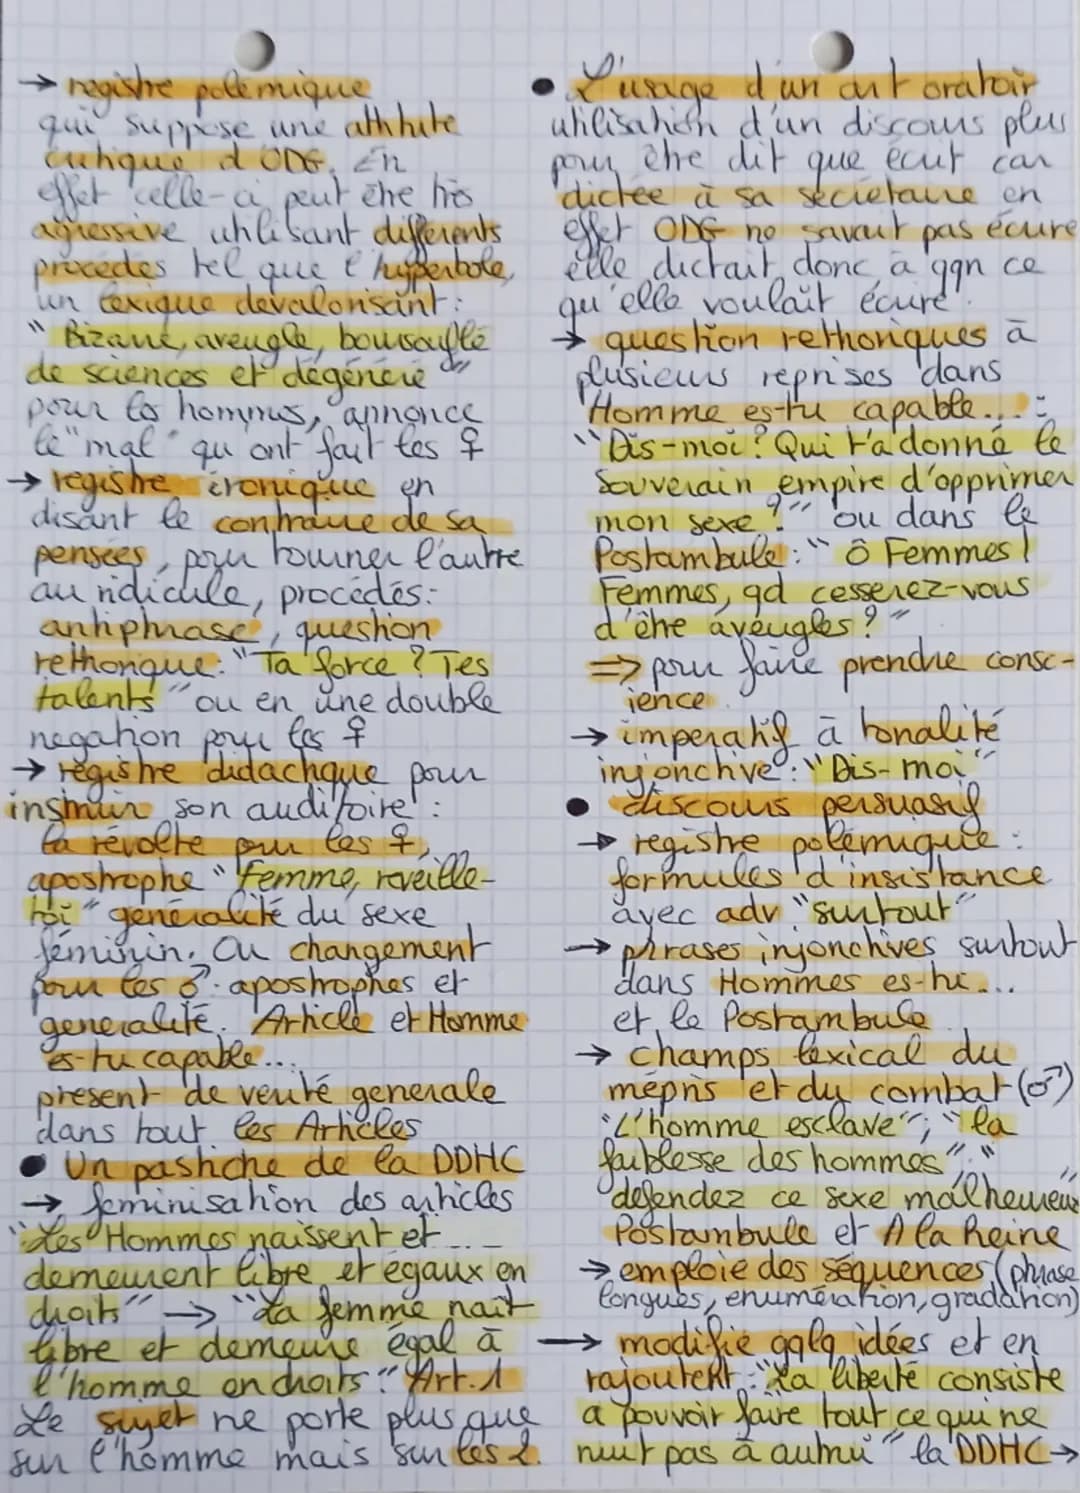 → registre polemique
qui suppose une attitute
critique d'ODG. En
effet celle-ci peut être très
agressive utilisant differents
procedes tel que l'hyperbole,
un lexique devalorisant :
"Bizarre, aveugle, boursouflé
de sciences et dégénéré"
pour les hommes, annonce
le "mal" qu'ont fait les ♀
→ registre ironique en
disant le contraire de sa
pensées, pour tourner l'autre
au ridicule, procédés:
antiphrase, question
rethorique: "Ta force ? Tes
talents" ou en une double
negation pour les ♀
→ régistre didactique pour
instruir son auditoire :
la révolte pour les ♀,
apostrophe "Femme, reveille-
toi" généralité du sexe
féminin. Ou changement
pour les ♂: apostrophes et
generalité. Article et Homme
es-tu capable...
present de verité generale
dans tout les Articles
● Un pastiche de la DDHC
→ feminisation des articles
"Les Hommes naissent et
demeurent libre et égaux en
droits" → "La femme nait
libre et demeure égal à
l'homme en droits" Art. 1
Le sujet ne porte plus que
sur l'homme mais sur les 2.
● L'usage d'un art oratoir
utilisation d'un discours plus
pour être dit que écrit car
dictée à sa secrétaire en
effet ODG ne savait pas écrire
elle dictait donc à qqn ce
qu'elle voulait écrire.
→ question rethoriques à
plusieurs reprises dans
Homme es-tu capable... :
"Dis-moi ? Qui t'a donné le
Souverain empire d'opprimer
mon sexe ?" ou dans le
Postambule : "Ô Femmes !
Femmes, qd cesserez-vous
d'être aveugles ?"
=> pour faire prendre consc-
ience
→ imperatif à tonalité
injonctive : "Dis-moi"
● discours persuasif
→ registre polémique :
formules d'insistance
avec adv "surtout"
→ phrases injonctives surtout
dans Hommes es-tu...
et le Postambule
→ champs lexical du
mépris et du combat (♂)
"L'homme esclave"; "la
faiblesse des hommes", "
défendez ce sexe malheureux"
Postambule et A la Reine
→ emploie des séquences (phrase
longues, enumération, gradation)
→ modifie qqlq idées et en
rajoutent : "La liberté consiste
a pouvoir faire tout ce qui ne
nuit pas à autrui" la DDHC →